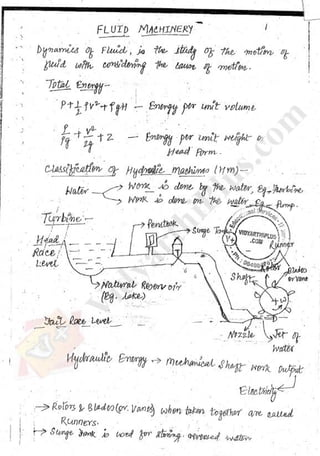 FLUID MACHINERY
1
Dynamics of Fluid, is the study of the motion of
fluid with considering the cause of motion.
Total Energy-
P+½ρv²+ρgH – Energy per unit volume
P/ρg + v²/2g + Z – Energy per unit weight or
Head Form.
Classification of Hydraulic Machines (HM):-
Water
→ Work is done by the water, Eg. Turbine
→ Work is done on the water, Eg. Pump.
Turbine:-
Penstock
Surge Tank
VIDYARTHIPLUS
.COM
V+
Runner
Head
Race
Level
Shaft
Rotor
Blades
or vane
+ω
→ Natural Reservoir
(Eg. lake)
Tail Race Level
Nozzle
Jet of
Water
Hydraulic Energy → Mechanical Shaft Work Output
Electricity
→ Rotors & Blades (or. Vanes) when taken together are called
Runners.
→ Surge tank is used for storing water